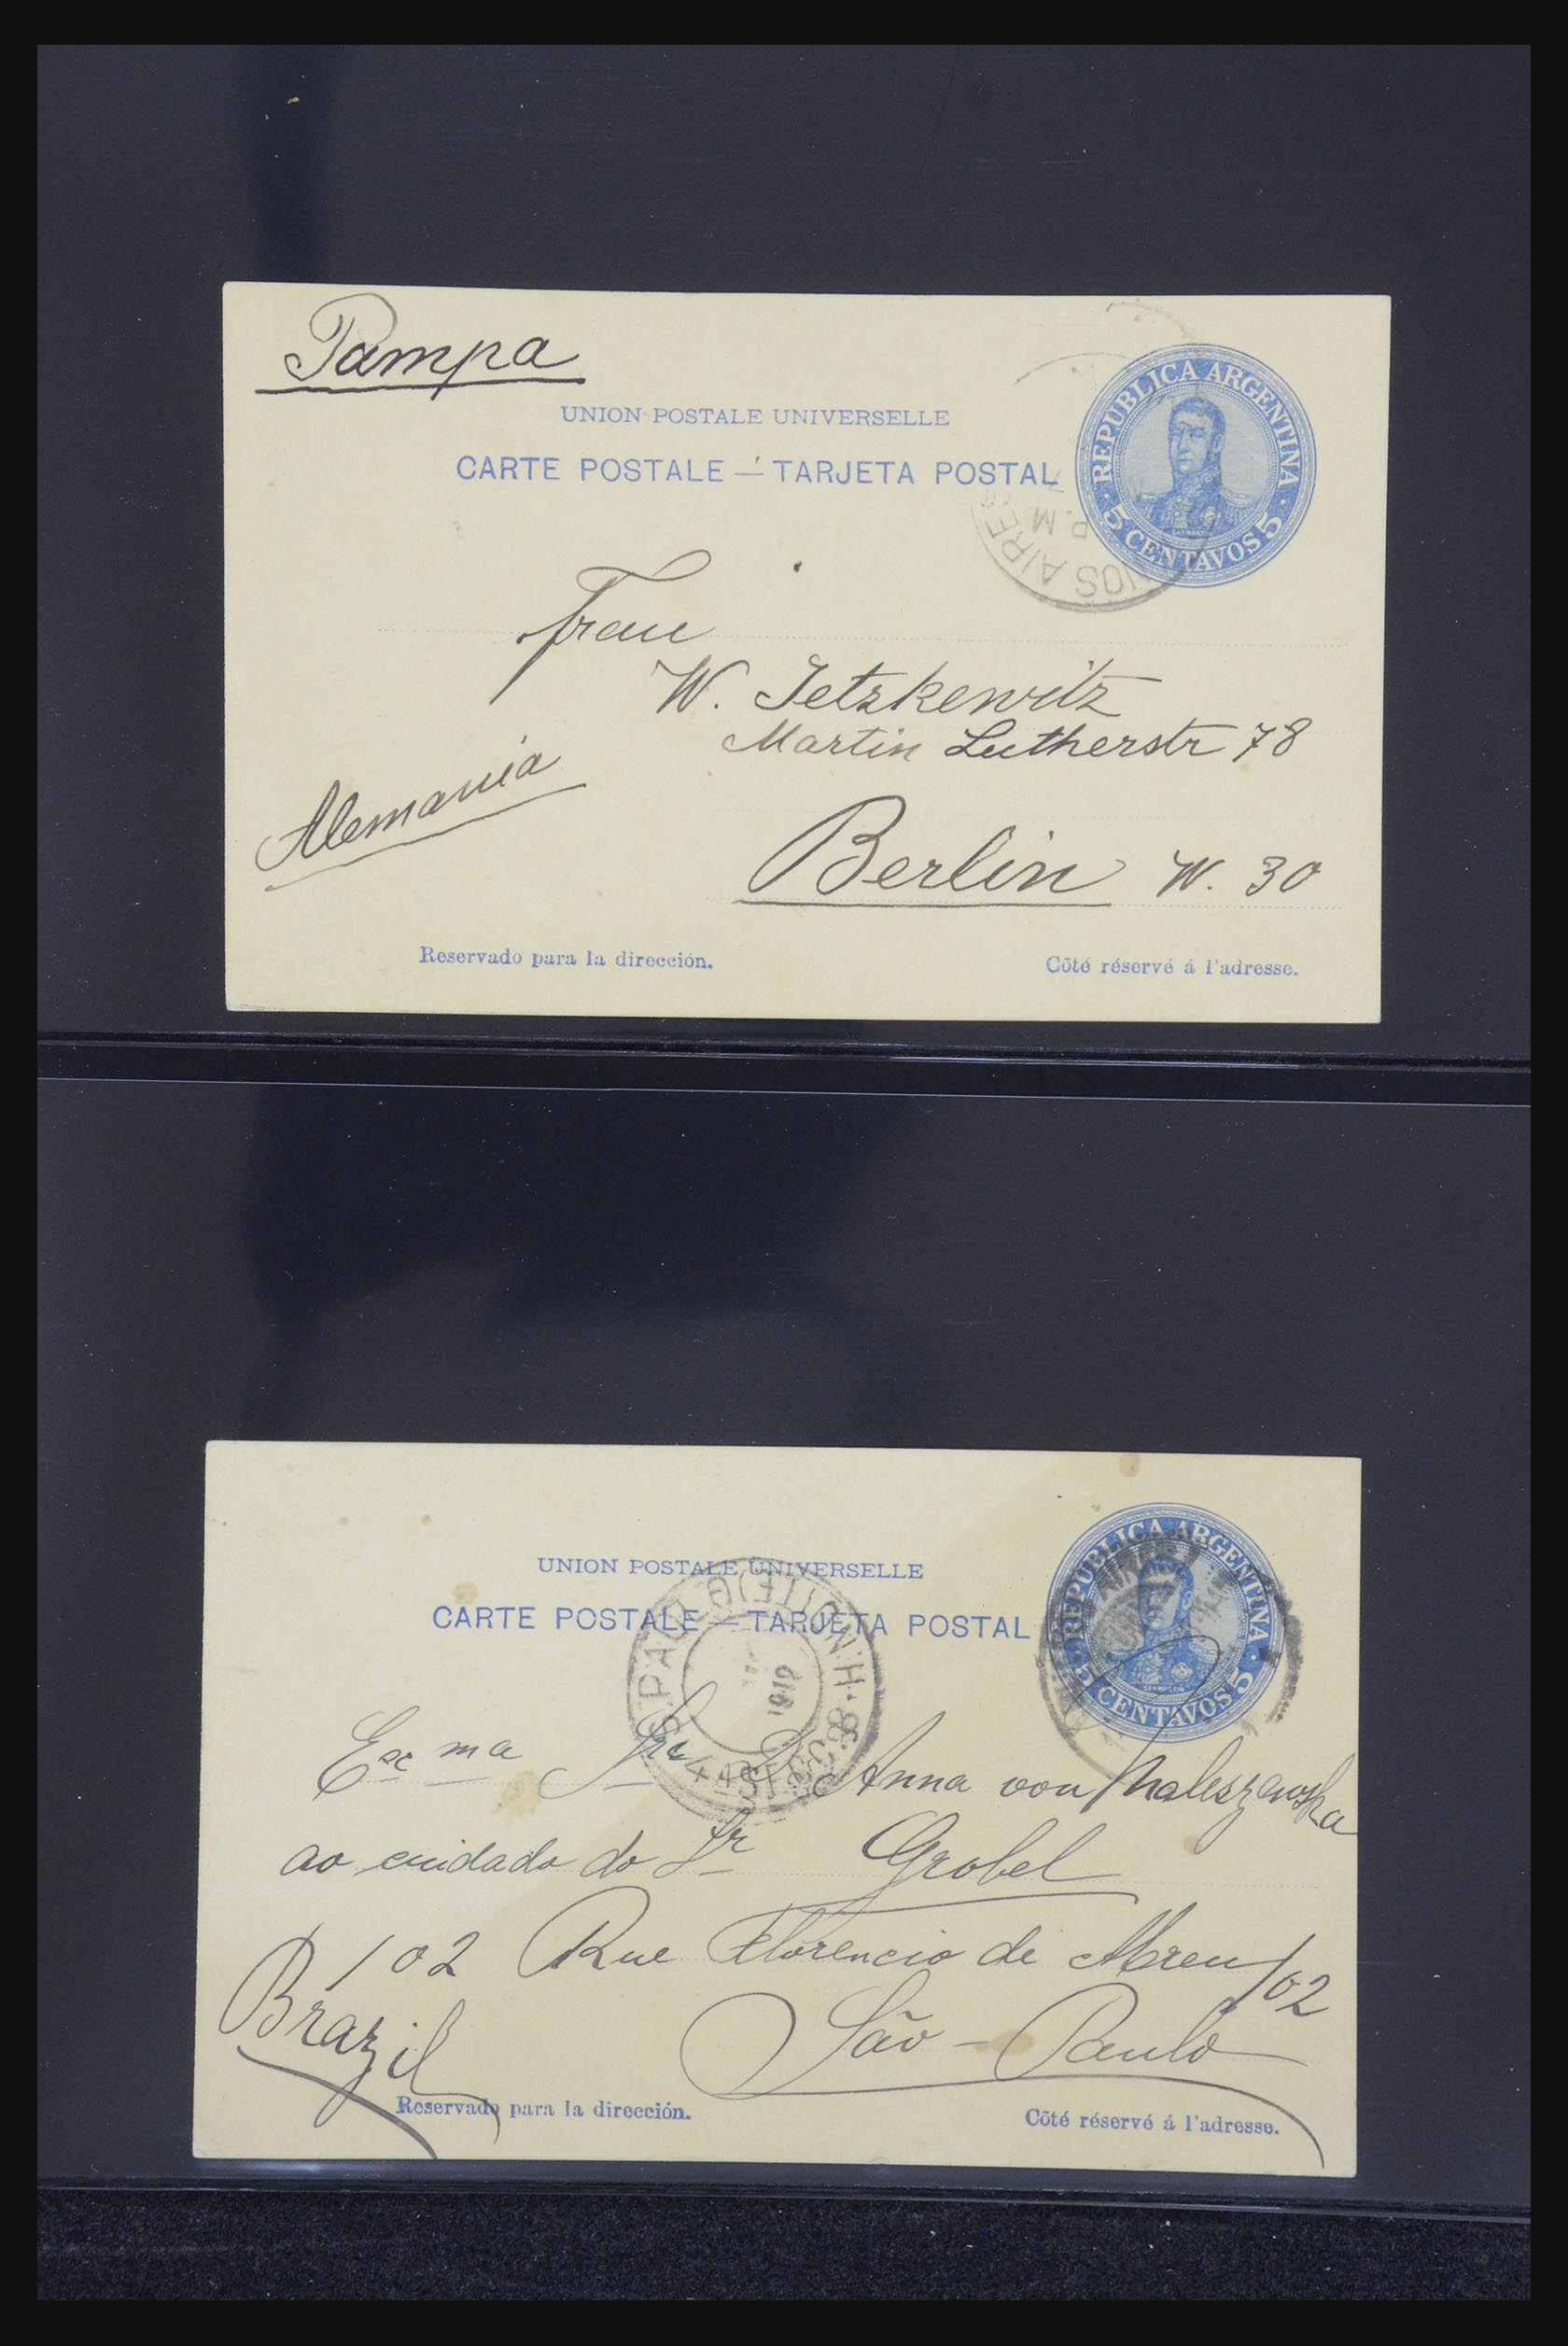 Pampa
UNION POSTALE UNIVERSELLE
CARTE POSTALE — TARJETA POSTAL
REPUBLICA ARGENTINA
SAN MARTIN
5 CENTAVOS 5
NOS AIRES
P.M.
Frau
W. Jetzkewitz
Martin Lutherstr 78
Alemania
Berlin W. 30
Reservado para la dirección.
Côté réservé á l'adresse.
UNION POSTALE UNIVERSELLE
CARTE POSTALE — TARJETA POSTAL
REPUBLICA ARGENTINA
SAN MARTIN
5 CENTAVOS 5
S. PAULO
1910
Exc ma Sra D. Anna von Maleszewska
ao cuidado do Sr Grobel
102 Rue Florencio de Abreu 102
Brazil
São - Paulo
Reservado para la dirección.
Côté réservé á l'adresse.